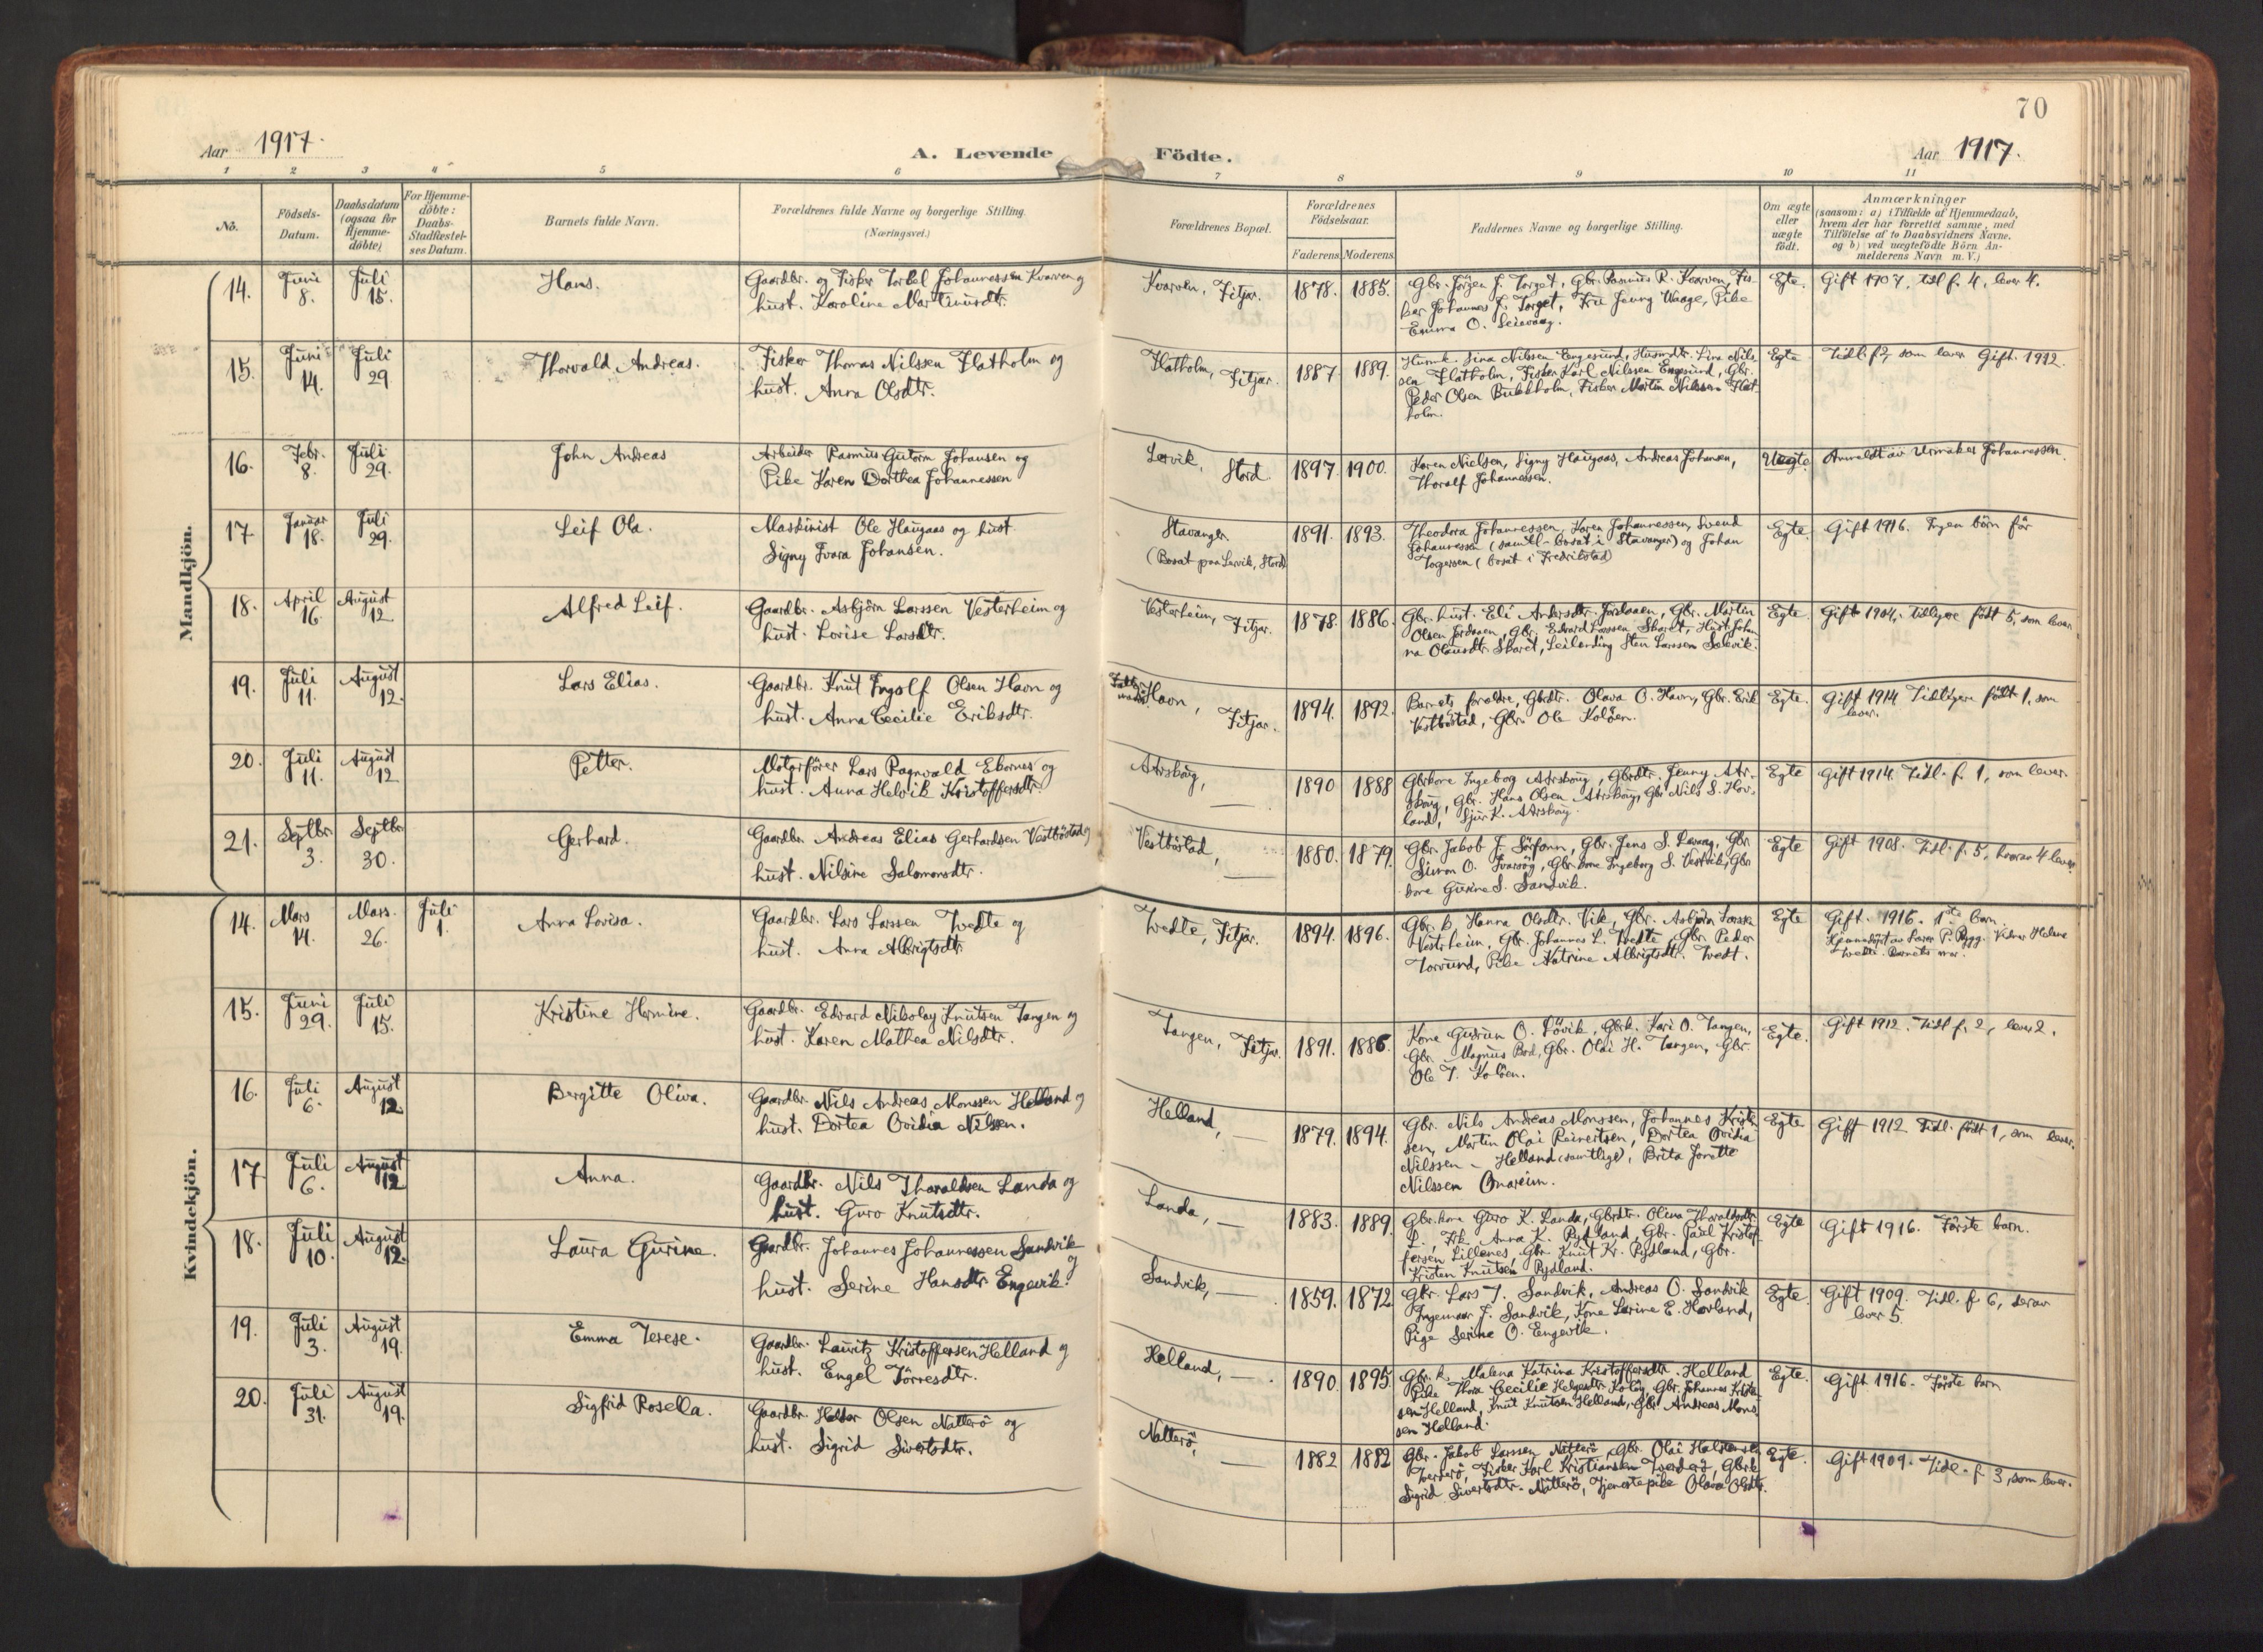 70
Aar 1917.
A. Levende Födte.
Aar 1917.
1 2 3 4 5 6 7 8 9 10 11
No.
Födsels-Datum.
Daabsdatum (ogsaa for Hjemme-döbte)
For Hjemme-döbte: Daabs-Stadfæstel-ses Datum.
Barnets fulde Navn.
Forældrenes fulde Navne og borgerlige Stilling. (Næringsvei.)
Forældrenes Bopæl.
Forældrenes Födselsaar.
Faderens Moderens
Faddernes Navne og borgerlige Stilling.
Om ægte eller uægte födt.
Anmærkninger
(saasom: a) i Tilfælde af Hjemmedaab,
hvem der har forrettet samme, med
Tilföielse af to Daabsvidners Navne,
og b) ved uægtefödte Börn An-
melderens Navn m. V.)
Mandkjön.
14. Juni 8. Juli 15. Hans.
Gaardbr. og Fisker Torkel Johannessen Kvarven og
hust. Karoline Martinusdtr.
Kvarven, Fitjar. 1878. 1885.
Gbr. Jörgen J. Torget, Gbr. Rasmus R. Kvarven, Fis-
ker Johannes J. Torget, Fru Jenny Waage, Pike
Emma O.
Egte. Gift 1907, tidl f. 4, lever 4.
15. Juni 14. Juli 29. Thorvald Andreas.
Fisker Thomas Nilssen Flatholm og
hust. Anna Olsdtr.
Flatholm, Fitjar. 1887 1889.
Husmk. Sina Nilssen Engesund, Husmdtr. Lina Nils-
sen Flatholm, Fisker Karl Nilssen Engesund, Gbr.
Peder Olsen Bukkholm, Fisker Martin Nilssen Flat-
holm.
Egte Tidl. f 2, som lever Gift. 1912.
16. Febr. 8. Juli 29. John Andreas
Arbeider Rasmus Gutorm Johansen og
Pike Karen Dorthea Johannessen
Lervik, Stord. 1897. 1900.
Karen Nielsen, Signy Haugaas, Andreas Johansen,
Thoralf Johannessen.
Uegte Anmeldt av Urmaker Johannessen.
17 Januar 18. Juli 29. Leif Ola.
Maskinist Ole Haugaas og hust
Signy Johansen.
Stavanger
(Bosat paa Lervik, Stord) 1891. 1893.
Theodora Johannessen, Karen Johannessen, Svend
Johannessen (samtl- bosat i Stavanger) og Johan
(bosat i Fredrikstad)
Egte. Gift 1916. Ingen börn för
18. April 16. August 12 Alfred Leif.
Gaardbr. Asbjörn Larssen Vesterheim og
hust. Lovise Larsdtr.
Vesterheim, Fitjar. 1878. 1886.
Gbr. hust. Eli Andersdtr. Jordaaen, Gbr. Martin
Olsen Jordaaen, Gbr. Edvard Larssen Skaret, Hust. Johan-
na Olausdtr. Skaret, Leilending Sten Larssen
Egte Gift 1904, tidligere födt 5, som lever
19. Juli 11. August 12. Lars Elias.
Gaardbr. Knut Ingolf Olsen Havn og
hust. Anna Cecilie Eriksdtr.
Havn, Fitjar. 1894. 1892.
Barnets foreldre, Gbrdtr. Olava O. Havn, Gbr. Erik
Vestböstad, Gbr. Ole Kolöen.
Egte. Gift 1914. Tidligere födt 1, som
lever.
20. Juli 11. August 12 Petter.
Motorförer Lars Ragnvald Ebornes og
hust. Anna Helvik Kristoffersdtr.
Aarskoug, — 1890 1888
Gbrkone Ingeborg Aarskoug, Gbrdtr. Jenny Aar-
skoug, Gbr. Hans Olsen Aarskoug, Gbr Nils S. Hov-
land, Sjur K. Aarskoug.
Egte Gift 1914. Tidl. f. 1, som lever.
21. Septbr. 3. Septbr 30. Gerhard.
Gaardbr. Andreas Elias Gerhardsen Vestböstad og
hust. Nilsine Salomonsdtr.
Vestböstad, — 1880. 1879.
Gbr. Jakob J. Sörfonn, Gbr. Jens S. , Gbr
Simon O. , Gbr. kone Ingeborg S. Vestvik, Gbr
kone Gurine S. Sandvik.
Egte Gift 1908. Tidl. f. 5, hvorav 4 lever.
Kvindekjön.
14. Mars 14. Mars. 26. Juli 1. Anna Lovisa.
Gaardbr. Lars Larssen Tvedte og
hust. Anna Albrigtsdtr.
Tvedte, Fitjar. 1894. 1896.
Gbr. k. Hanna Olsdtr. Vik, Gbr. Asbjörn Larssen
Vestrheim, Gbr. Johannes L. Tvedte, Gbr. Peder
Torsund, Pike Katrine Albrigtsdtr. Tvedt.
Egte Gift. 1916. 1ste barn.
Hjemmedöpt av Lærer P. Rygg. Vidner Helene
Tvedte. Barnets mor.
15. Juni 29. Juli 15. Kristine Hermine.
Gaardbr. Edvard Nikolay Knutsen Tangen og
hust. Karen Mathea Nilsdtr.
Tangen, Fitjar. 1891. 1886.
Kone Gudrun O. Lövik, Gbrk. Kari O. Tangen,
Gbr. Magnus , Gbr. Olai H. Tangen, Gbr.
Ole T. Kolöen.
Egte. Gift 1912. Tidl f. 2, lever 2.
16. Juli 6. August 12 Bergitte Oliva.
Gaardbr. Nils Andreas Monssen Helland og
hust. Dortea Ovidia Nilssen.
Helland, — 1879. 1894.
Gbr. Nils Andreas Monssen, Johannes Kristen-
sen, Martin Olai Reinertsen, Dortea Ovidia
Nilssen - Helland (samtlige), Brita Jorette
Nilssen Onareim.
Egte Gift 1912 Tidl. födt 1, som lever.
17 Juli 6. August 12 Anna.
Gaardbr. Nils Tharaldsen Landa og
hust. Guro Knutsdtr.
Landa, — 1883. 1889.
Gbr. kone Guro K. Landa, Gbrdtr. Olina Tharaldsdtr.
L., Frk. Anna K. Rydland, Gbr. Paul Kristof-
fersen Lillenes, Gbr. Knut Kr. Rydland, Gbr.
Kristen Knutsen Rydland.
Egte Gift 1916. Förste barn.
18. Juli 10. August 12. Laura Gurine.
Gaardbr. Johannes Johannessen Sandvik og
hust. Serine Hansdtr Engevik.
Sandvik, — 1859. 1872
Gbr. Lars J. Sandvik, Andreas O. Sandvik
Ingemar J. Sandvik, Kone Larine E. Havland,
Pige Serine O. Engevik.
Egte Gift 1909. Tidl. f. 6, derav
lever 5.
19. Juli 3. August 19. Emma Terese.
Gaardbr. Lauritz Kristoffersen Helland og
hust. Engel Törresdtr.
Helland, — 1890. 1895.
Gbr. k. Malena Katrina Kristoffersdtr. Helland
Pike Thora Cecilie Helgesdtr. , Gbr. Johannes Kristen-
sen Helland, Knut Knutsen Helland, Gbr. Andreas Mons-
sen Helland.
Egte. Gift 1916. Förste barn
20. Juli 31. August 19. Sigfrid Rosella.
Gaardbr. Haldor Olsen Natterö og
hust. Sigrid Sivertsdtr.
Natterö, — 1882 1882
Gbr. Jakob Larssen Natterö, Gbr. Olai Halstensen
, Fisker Karl Kristiansen , Gbrk
Sigrid Sivertsdtr. Natterö, Tjenestepike Olava Olsdtr.
Egte. Gift 1909. Tidl. f. 3, som lever.